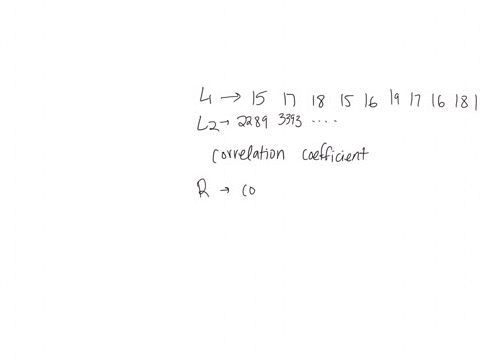 L1 → 15 17 18 15 16 19 17 16 18 1
L2 → 2289 3393 ....
correlation coefficient
R → co